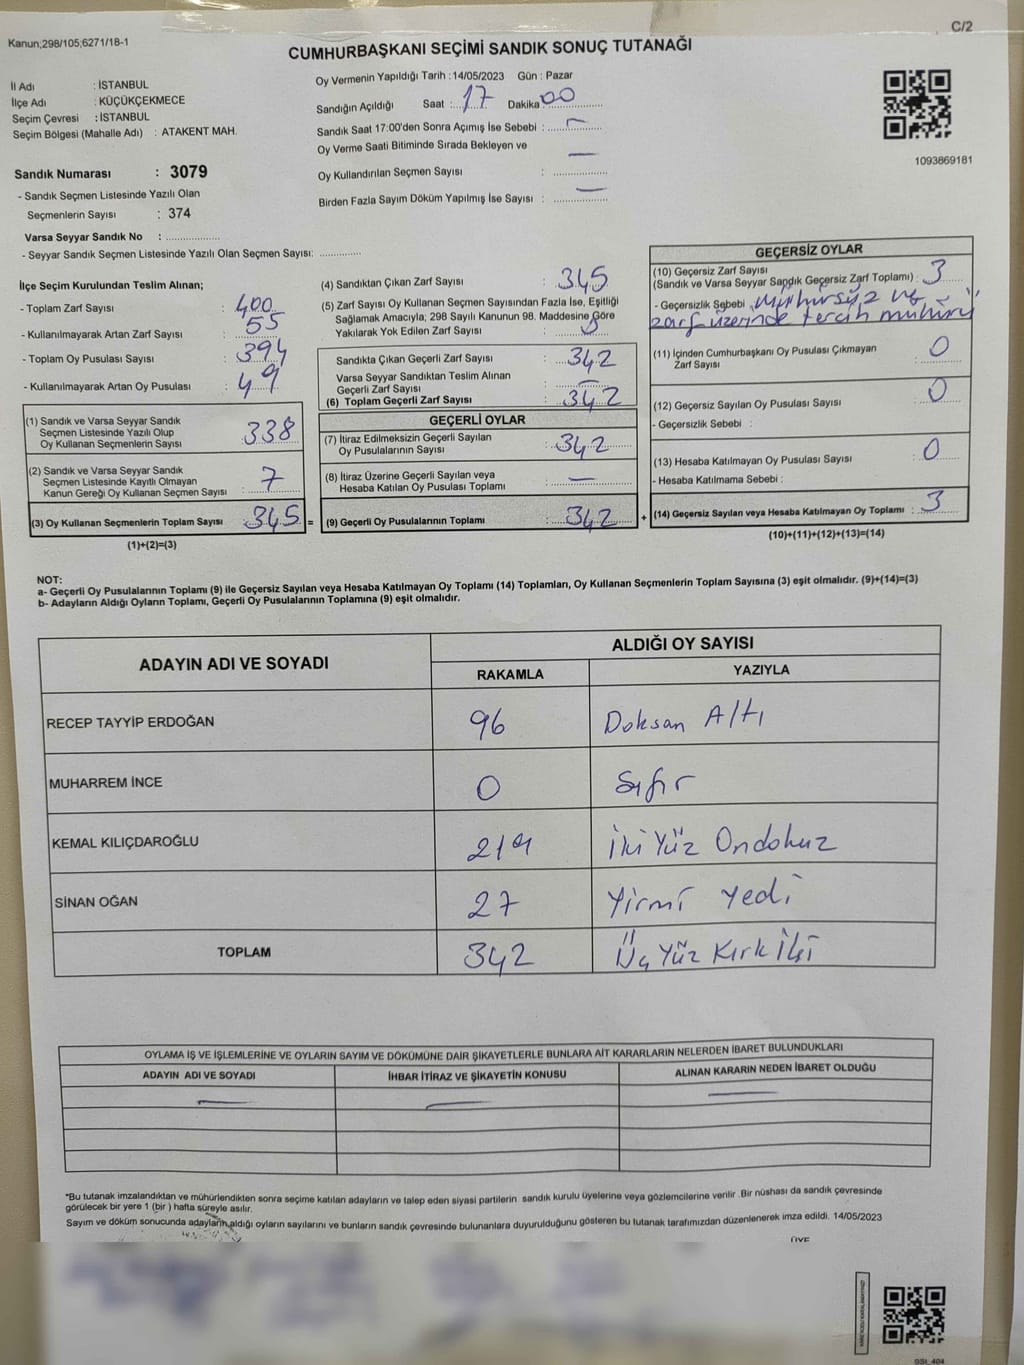 C/2
Kanun;298/105;6271/18-1
CUMHURBAŞKANI SEÇİMİ SANDIK SONUÇ TUTANAĞI
İl Adı : İSTANBUL
İlçe Adı : KÜÇÜKÇEKMECE
Seçim Çevresi : İSTANBUL
Seçim Bölgesi (Mahalle Adı) : ATAKENT MAH.
Sandık Numarası : 3079
- Sandık Seçmen Listesinde Yazılı Olan
Seçmenlerin Sayısı : 374
Varsa Seyyar Sandık No : ..................
- Seyyar Sandık Seçmen Listesinde Yazılı Olan Seçmen Sayısı: .............
Oy Vermenin Yapıldığı Tarih :14/05/2023 Gün : Pazar
Sandığın Açıldığı Saat : 17 Dakika 00
Sandık Saat 17:00'den Sonra Açımış İse Sebebi : —
Oy Verme Saati Bitiminde Sırada Bekleyen ve
Oy Kullandırılan Seçmen Sayısı : —
Birden Fazla Sayım Döküm Yapılmış İse Sayısı : —
1093869181
İlçe Seçim Kurulundan Teslim Alınan;
- Toplam Zarf Sayısı : 400
- Kullanılmayarak Artan Zarf Sayısı : 55
- Toplam Oy Pusulası Sayısı : 394
- Kullanılmayarak Artan Oy Pusulası : 49
(1) Sandık ve Varsa Seyyar Sandık
Seçmen Listesinde Yazılı Olup
Oy Kullanan Seçmenlerin Sayısı : 338
(2) Sandık ve Varsa Seyyar Sandık
Seçmen Listesinde Kayıtlı Olmayan
Kanun Gereği Oy Kullanan Seçmen Sayısı : 7
(3) Oy Kullanan Seçmenlerin Toplam Sayısı : 345 =
(1)+(2)=(3)
(4) Sandıktan Çıkan Zarf Sayısı : 345
(5) Zarf Sayısı Oy Kullanan Seçmen Sayısından Fazla İse, Eşitliği
Sağlamak Amacıyla; 298 Sayılı Kanunun 98. Maddesine Göre
Yakılarak Yok Edilen Zarf Sayısı :
Sandıkta Çıkan Geçerli Zarf Sayısı : 342
Varsa Seyyar Sandıktan Teslim Alınan
Geçerli Zarf Sayısı : —
(6) Toplam Geçerli Zarf Sayısı : 342
GEÇERLİ OYLAR
(7) İtiraz Edilmeksizin Geçerli Sayılan
Oy Pusulalarının Sayısı : 342
(8) İtiraz Üzerine Geçerli Sayılan veya
Hesaba Katılan Oy Pusulası Toplamı : —
(9) Geçerli Oy Pusulalarının Toplamı : 342 +
GEÇERSİZ OYLAR
(10) Geçersiz Zarf Sayısı
(Sandık ve Varsa Seyyar Sandık Geçersiz Zarf Toplamı) : 3
- Geçersizlik Sebebi : Mühürsüz ve
zarf üzerinde tercih mühürü
(11) İçinden Cumhurbaşkanı Oy Pusulası Çıkmayan
Zarf Sayısı : 0
(12) Geçersiz Sayılan Oy Pusulası Sayısı : 0
- Geçersizlik Sebebi :
(13) Hesaba Katılmayan Oy Pusulası Sayısı : 0
- Hesaba Katılmama Sebebi :
(14) Geçersiz Sayılan veya Hesaba Katılmayan Oy Toplamı : 3
(10)+(11)+(12)+(13)=(14)
NOT:
a- Geçerli Oy Pusulalarının Toplamı (9) ile Geçersiz Sayılan veya Hesaba Katılmayan Oy Toplamı (14) Toplamları, Oy Kullanan Seçmenlerin Toplam Sayısına (3) eşit olmalıdır. (9)+(14)=(3)
b- Adayların Aldığı Oyların Toplamı, Geçerli Oy Pusulalarının Toplamına (9) eşit olmalıdır.
ADAYIN ADI VE SOYADI ALDIĞI OY SAYISI
RAKAMLA YAZIYLA
RECEP TAYYİP ERDOĞAN 96 Doksan Altı
MUHARREM İNCE 0 Sıfır
KEMAL KILIÇDAROĞLU 219 İki Yüz Ondokuz
SİNAN OĞAN 27 Yirmi Yedi
TOPLAM 342 Üç Yüz Kırk İki
OYLAMA İŞ VE İŞLEMLERİNE VE OYLARIN SAYIM VE DÖKÜMÜNE DAİR ŞİKAYETLERLE BUNLARA AİT KARARLARIN NELERDEN İBARET BULUNDUKLARI
ADAYIN ADI VE SOYADI İHBAR İTİRAZ VE ŞİKAYETİN KONUSU ALINAN KARARIN NEDEN İBARET OLDUĞU
— — —
"Bu tutanak imzalandıktan ve mühürlendikten sonra seçime katılan adayların ve talep eden siyasi partilerin sandık kurulu üyelerine veya gözlemcilerine verilir .Bir nüshası da sandık çevresinde
görülecek bir yere 1 (bir ) hafta süreyle asılır.
Sayım ve döküm sonucunda adayların aldığı oyların sayılarını ve bunların sandık çevresinde bulunanlara duyurulduğunu gösteren bu tutanak tarafımızdan düzenlenerek imza edildi. 14/05/2023
ÜYE